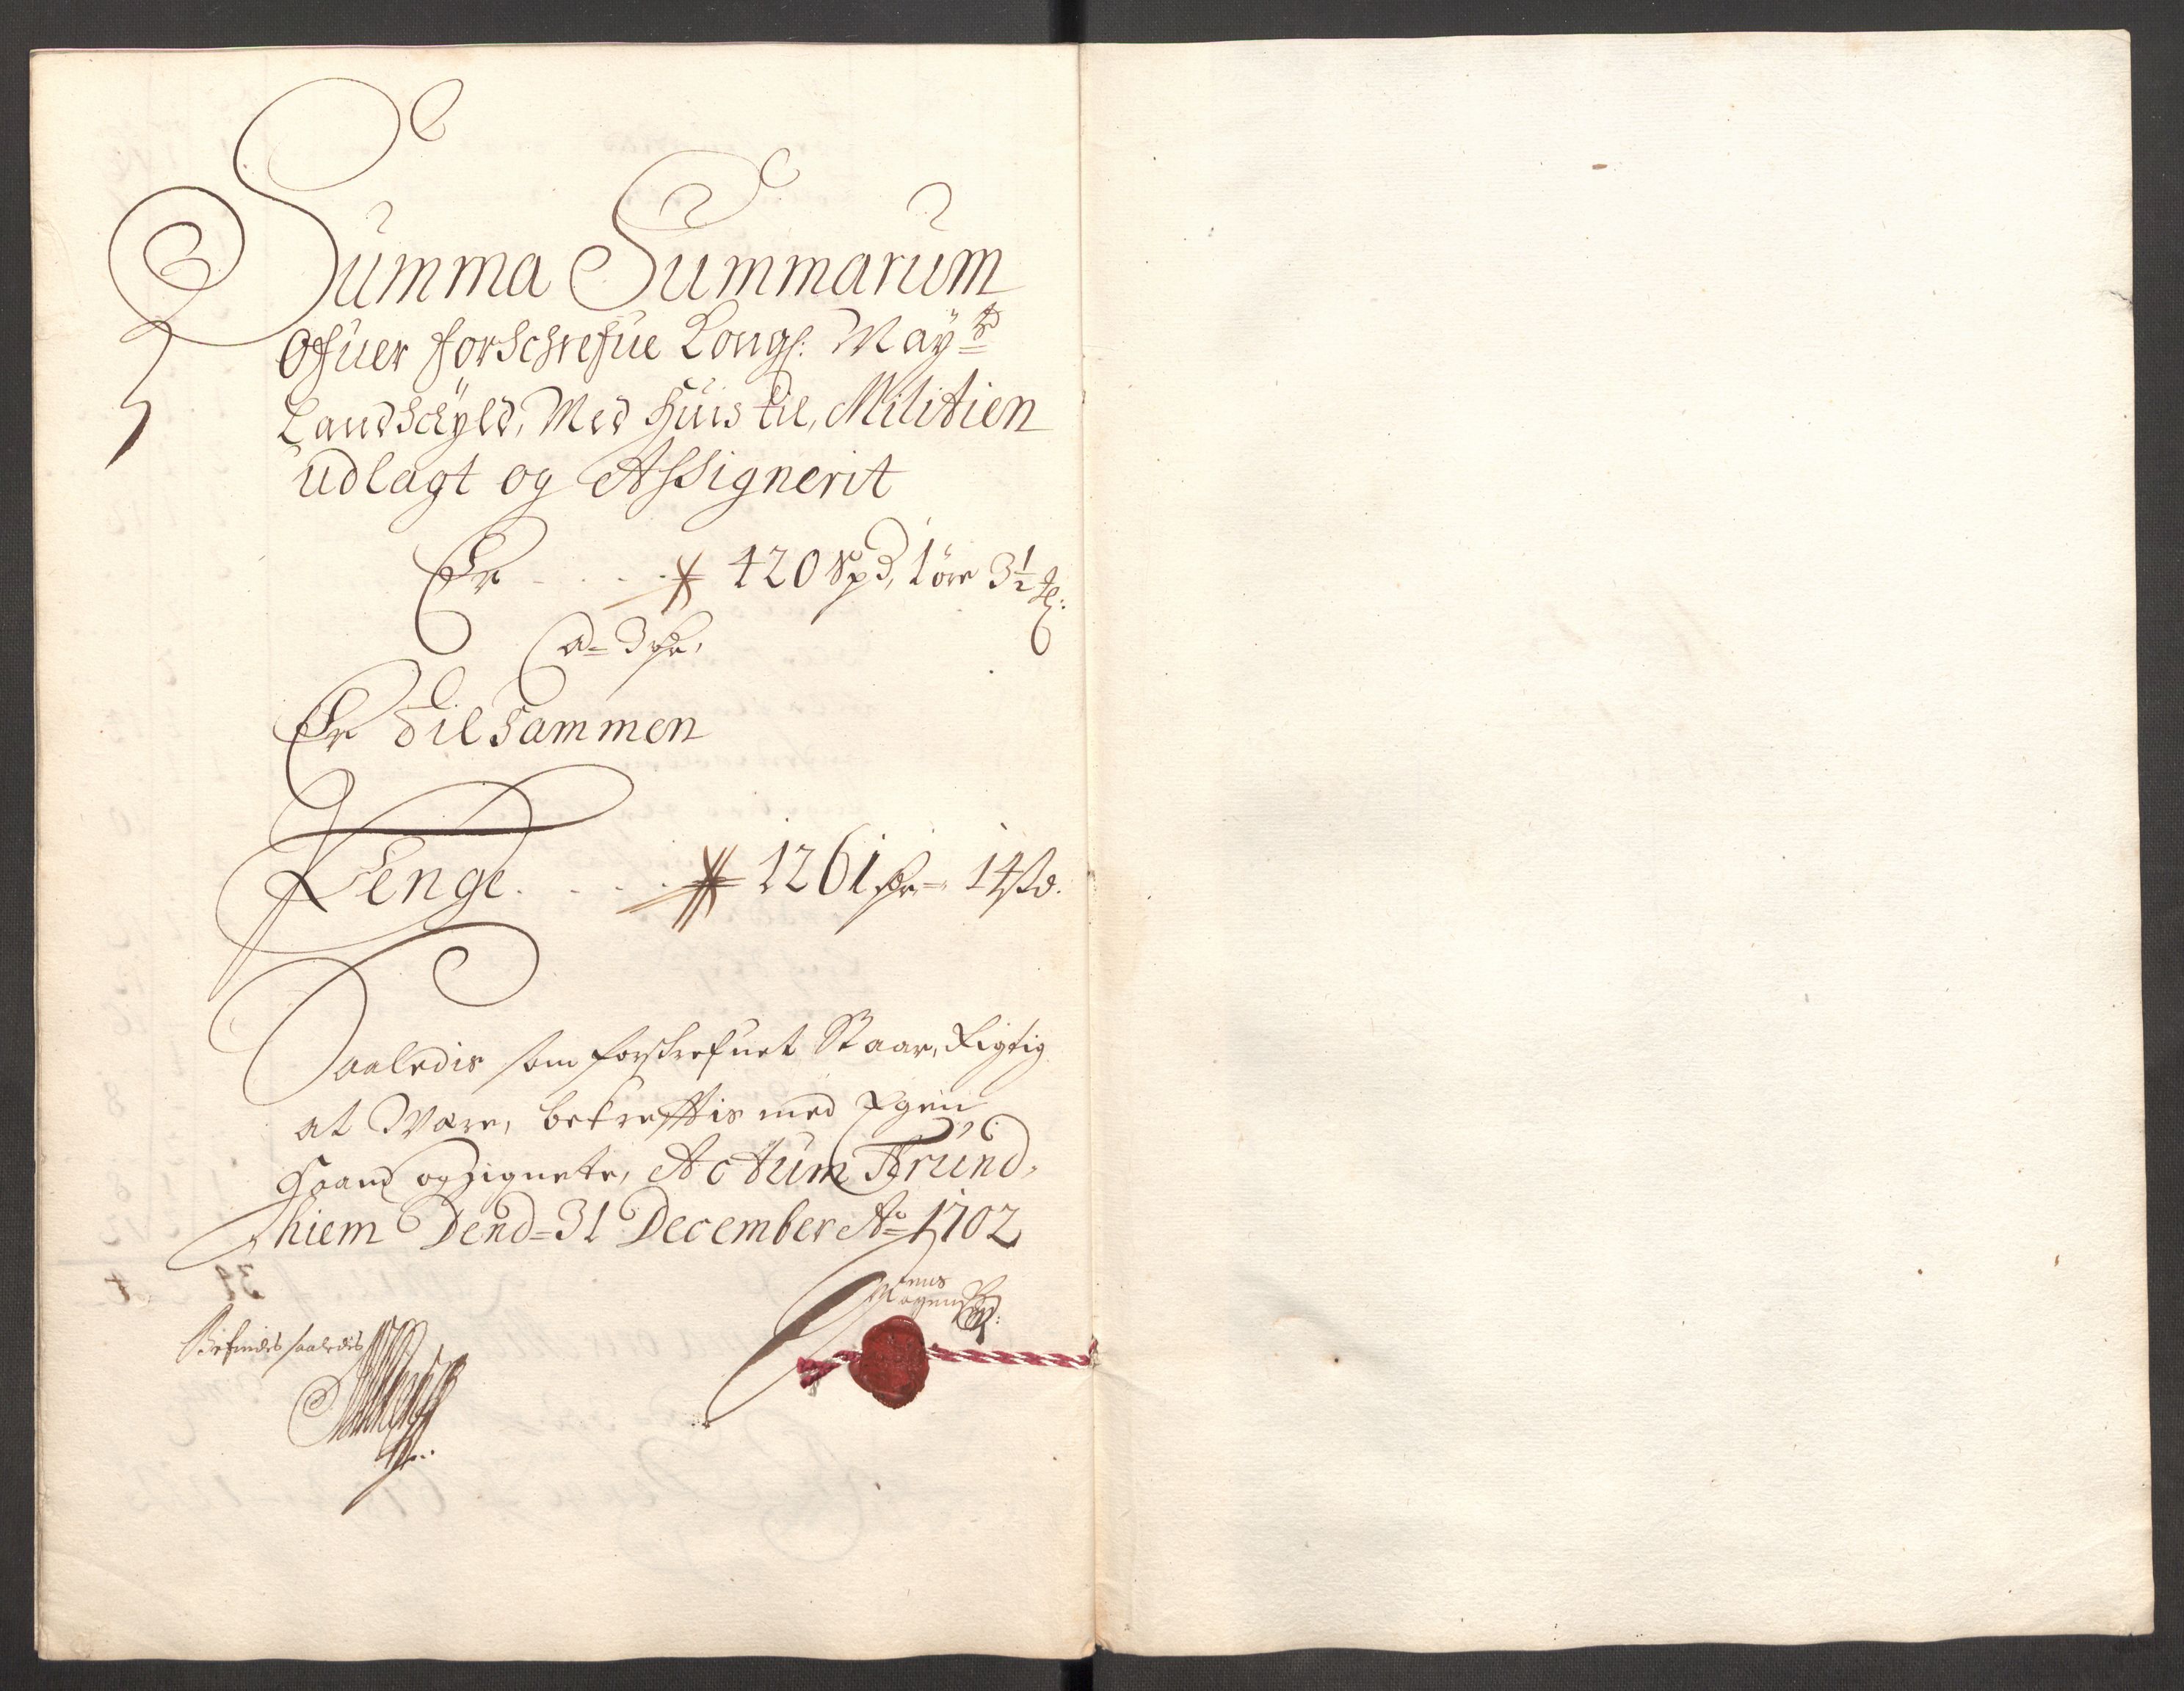 Summa Summarum
Ofuer forschrefue Kongl: May.tz
Landschyld, Med huis til, Militien
udlagt og Assignerit
Er - . . . 420 Spd, 1 öre 3½
a= 3 Rdr,
Er tilsammen
Penge. . . . . 1261 Rdr= 14 s.
Saaledis som forskrefuet Staar, Rigtig
at Være, bekreftis med Egen
Haand og Zignete, Actum Trund,
hiem Dend= 31 December Ao 1702
Jens
Mogens
Befindes saaledis